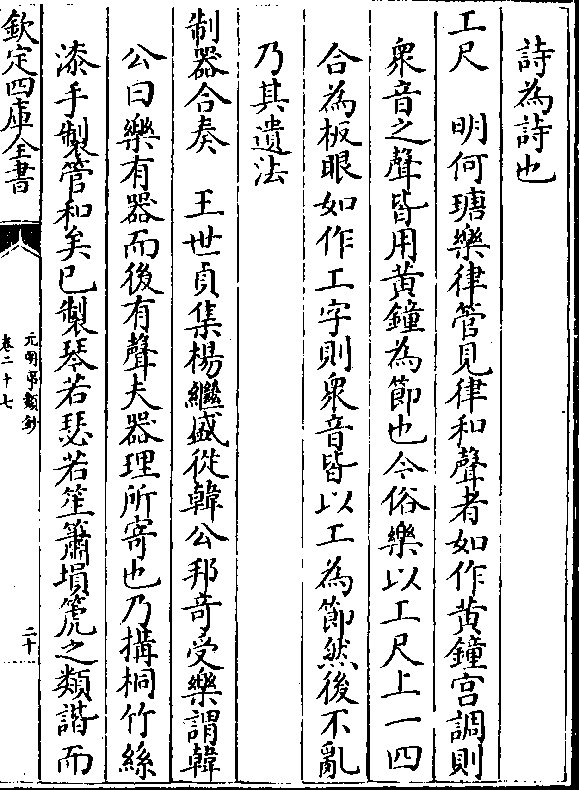 詩為詩也
工尺　明何瑭樂律管見律和聲者如作黄鐘宫調則
衆音之聲皆用黄鐘為節也今俗樂以工尺上一四
合為板眼如作工字則衆音皆以工為節然後不亂
乃其遺法
制器合奏　王世貞集楊繼盛從韓公邦竒受樂謂韓
公曰樂有器而後有聲夫器理所寄也乃搆桐竹絲
漆手製管和矣已製琴若瑟若笙簫塤箎之類諧而
欽定四庫全書
元明事類鈔
卷二十七
二十